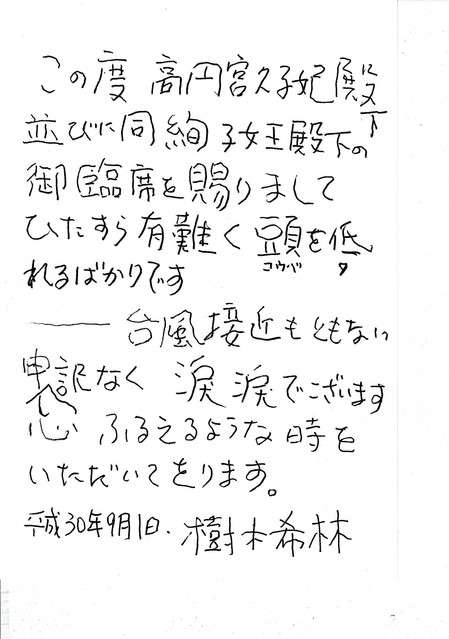 この度 高円宮久子妃殿下に
並びに同絢子女王殿下の
御臨席を賜りまして
ひたすら有難く頭を低
コウベ タ
れるばかりです
―― 台風接近もともない
申訳なく 涙涙でございます
心 ふるえるような時を
いただいてをります。
平成30年9月1日. 樹木希林